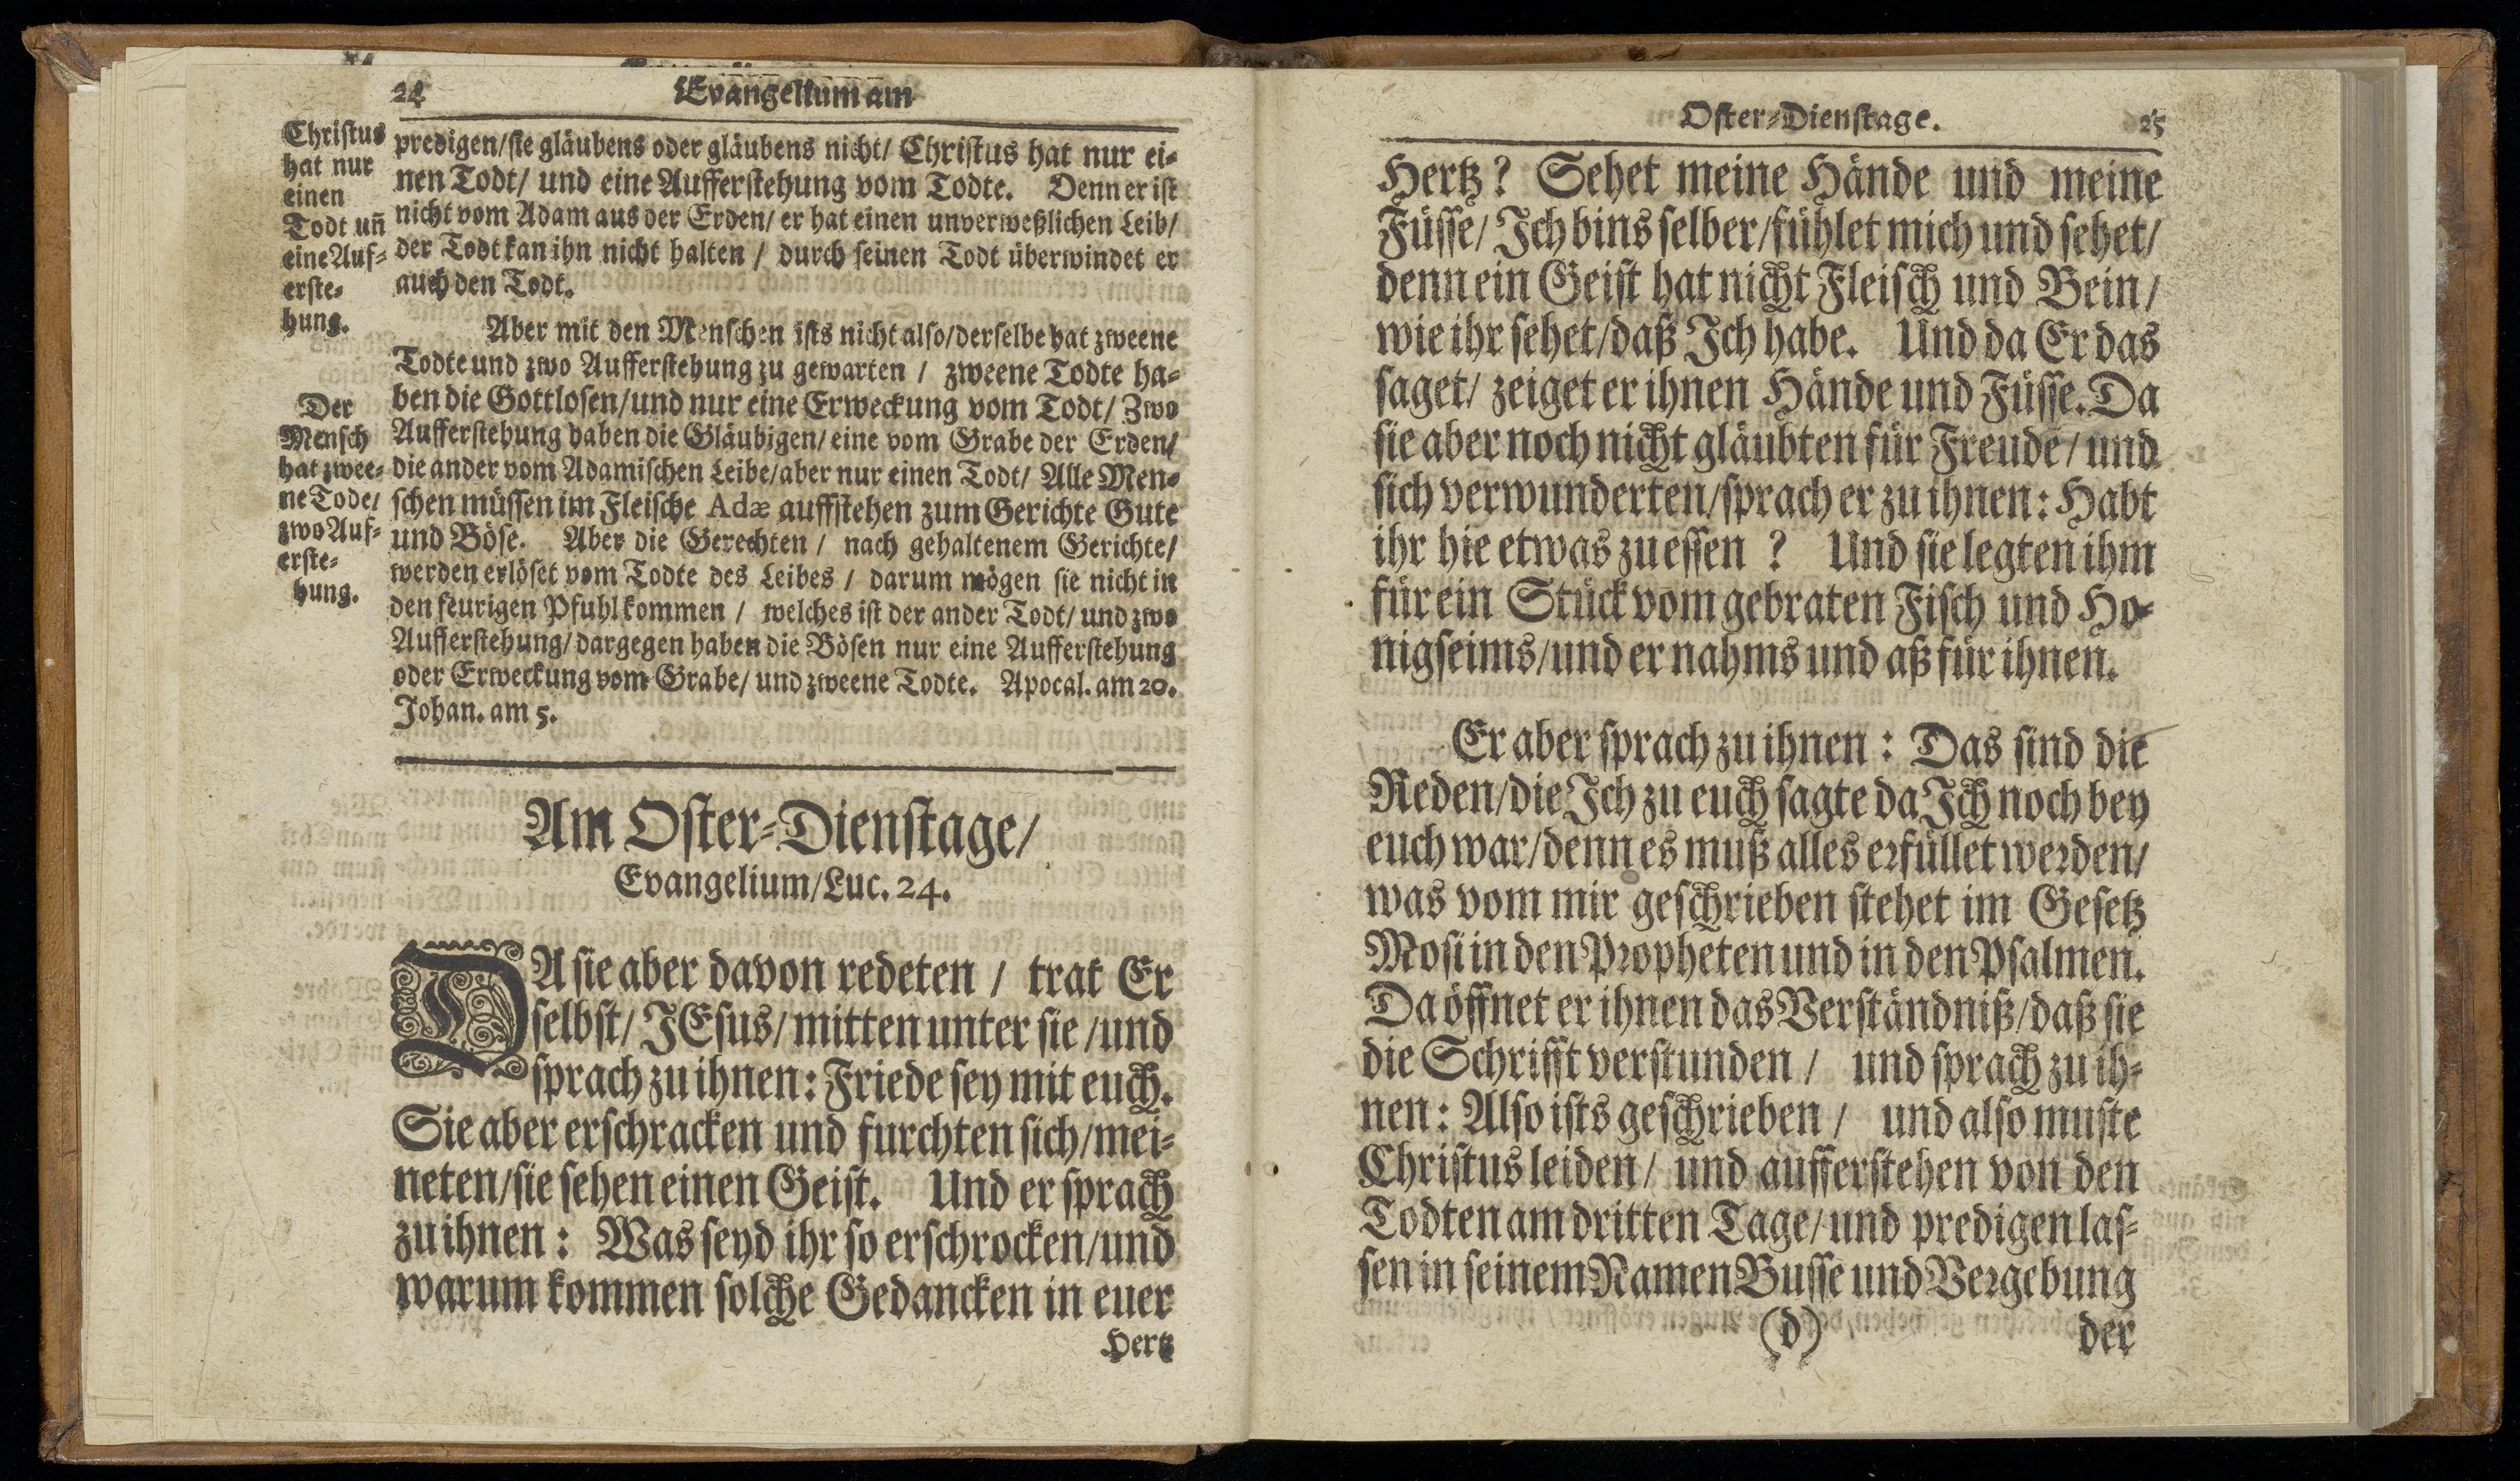 24
Evangelium am
Christus
hat nur
einen
Todt uñ
eine Auf-
erste-
hung.
predigen/sie gläubens oder gläubens nicht/ Christus hat nur ei-
nen Todt/ und eine Aufferstehung vom Todte. Denn er ist
nicht vom Adam aus der Erden/ er hat einen unverweßlichen Leib/
der Todt kan ihn nicht halten / durch seinen Todt überwindet er
auch den Todt.
Aber mit den Menschen ists nicht also/derselbe hat zweene
Todte und zwo Aufferstehung zu gewarten / zweene Todte ha-
ben die Gottlosen/und nur eine Erweckung vom Todt/ Zwo
Aufferstehung haben die Gläubigen/ eine vom Grabe der Erden/
die ander vom Adamischen Leibe/aber nur einen Todt/ Alle Men-
schen müssen im Fleische Adæ auffstehen zum Gerichte Gute
und Böse. Aber die Gerechten / nach gehaltenem Gerichte/
werden erlöset vom Todte des Leibes / darum mögen sie nicht in
den feurigen Pfuhl kommen / welches ist der ander Todt/ und zwo
Aufferstehung/ dargegen haben die Bösen nur eine Aufferstehung
oder Erweckung vom Grabe/ und zweene Todte. Apocal. am 20.
Johan. am 5.
Der
Mensch
hat zwee-
ne Tode/
zwo Auf-
erste-
hung.
Am Oster-Dienstage/
Evangelium/Luc. 24.
DA sie aber davon redeten / trat Er
selbst/ JEsus/ mitten unter sie /und
sprach zu ihnen: Friede sey mit euch.
Sie aber erschracken und furchten sich/mei-
neten/sie sehen einen Geist. Und er sprach
zu ihnen: Was seyd ihr so erschrocken/und
warum kommen solche Gedancken in euer
Hertz
Oster-Dienstage.
25
Hertz? Sehet meine Hände und meine
Füsse/ Ich bins selber/fühlet mich und sehet/
denn ein Geist hat nicht Fleisch und Bein/
wie ihr sehet/daß Ich habe. Und da Er das
saget/ zeiget er ihnen Hände und Füsse. Da
sie aber noch nicht gläubten für Freude/ und
sich verwunderten/sprach er zu ihnen: Habt
ihr hie etwas zu essen ? Und sie legten ihm
für ein Stück vom gebraten Fisch und Ho-
nigseims/und er nahms und aß für ihnen.
Er aber sprach zu ihnen: Das sind die
Reden/die Ich zu euch sagte da Ich noch bey
euch war/denn es muß alles erfüllet werden/
was vom mir geschrieben stehet im Gesetz
Mosi in den Propheten und in den Psalmen.
Da öffnet er ihnen das Verständniß/daß sie
die Schrifft verstunden / und sprach zu ih-
nen: Also ists geschrieben / und also muste
Christus leiden/ und aufferstehen von den
Todten am dritten Tage/und predigen las-
sen in seinem Namen Busse und Vergebung
(d)
der